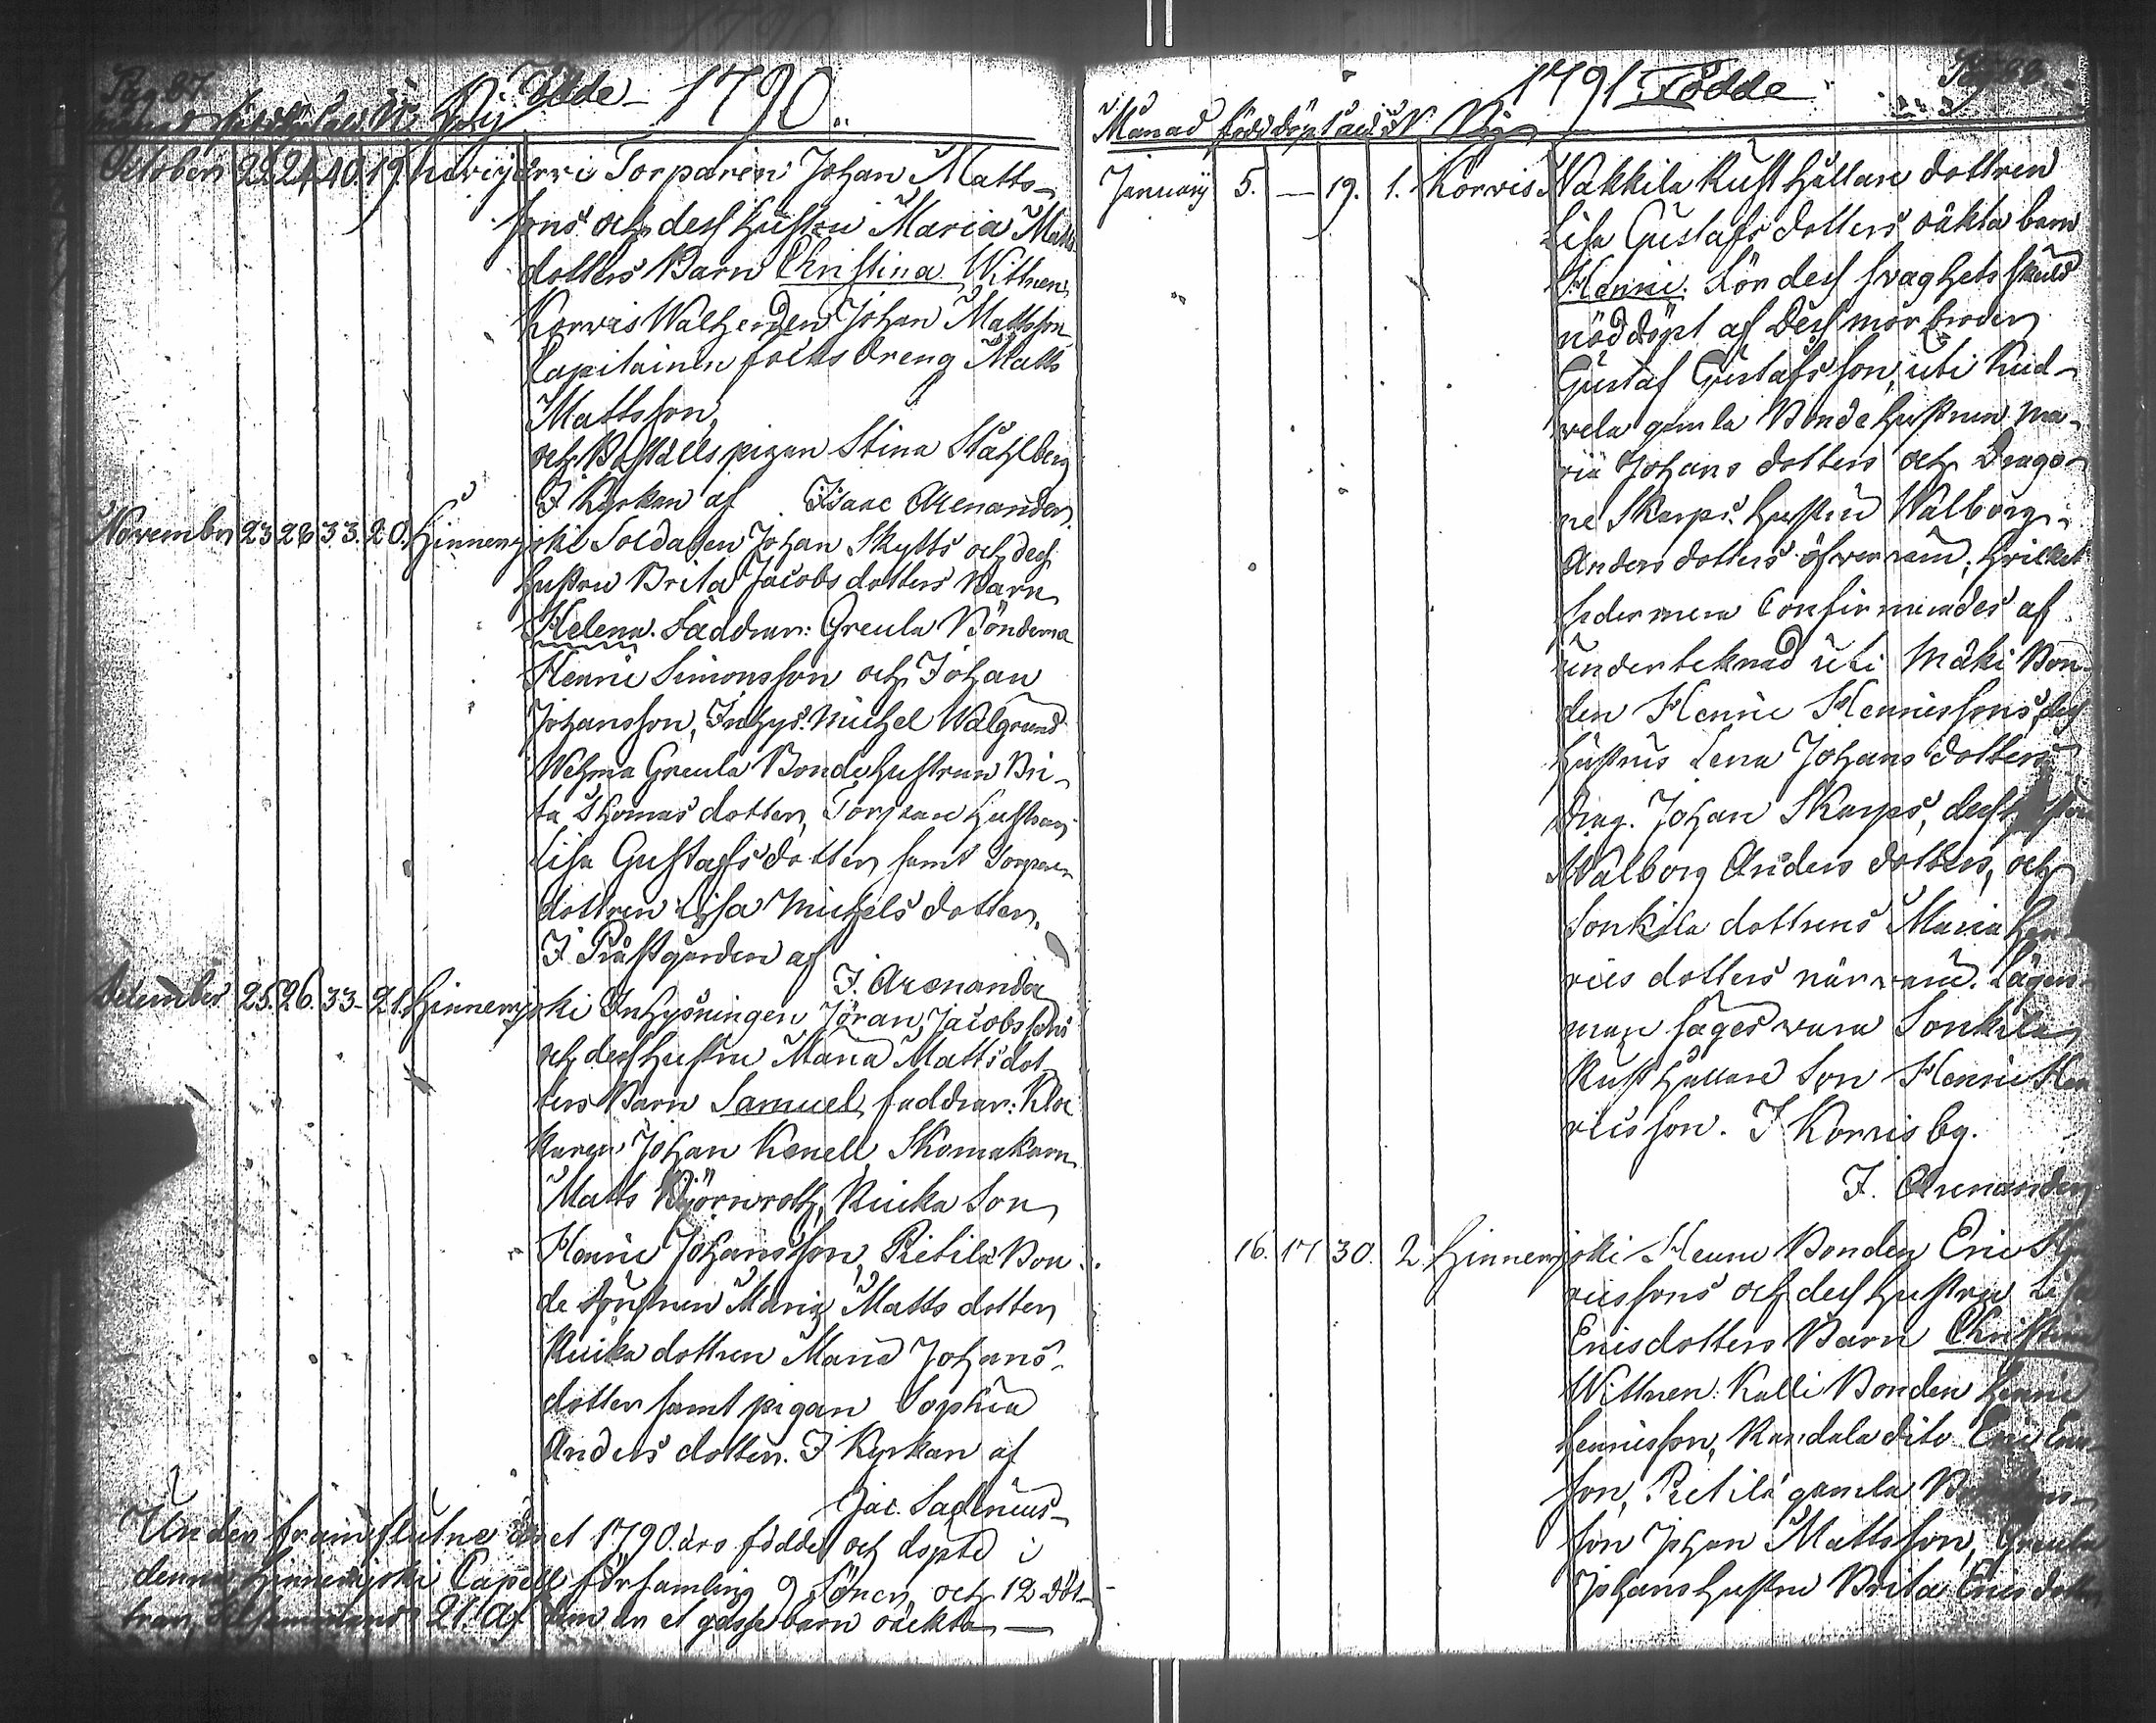 Pag 27. Födde 1790.
October 22. 24. 40. 19. Torparen Johan Matts-
sons och dess hustru Maria Matts
dotters Barn Christina. Wittnen
Korvis Johan Mattsson
Capitainen dreng Matts
Mattsson,
och pigan Stina Ståhlberg
I Kyrkan af Isaac Arenander.
November 23 26 33. 20. Hinnerjoki Soldaten Johan Skytts och dess
hustru Brita Jacobs dotters Barn
Helena. Faddrar: Greula Bönderna
Henric Simonsson och Johan
Johansson, Inhys. Michel Walgrund
Wehma Greula Bondehustrun Bri-
ta Thomas dotter, Torpare hustrun
Lisa Gustafs dotter samt Torpare
dottren Lisa Michels dotter.
I Prästgården af
I. Arenander
December 25. 26. 33. 21. Hinnerjoki Inhysningen Jöran Jacobssons
och dess hustru Maria Matts dot-
ters Barn Samuel, faddrar: Kloc
karen Johan Kenell, Skomakaren
Matts Björnroth, Ruika Son
Henric Johansson, Pietilä Bon-
de hustrun Maria Matts dotter
Ruika dottren Maria Johans
dotter samt pigan Sophia
Anders dotter. I Kyrkan af
Jac. Sacklinius
Under framflutne året 1790 äro födde och döpte i
denna Hinnerjoki Capell församling 9 Söner och 12 döt-
trar, Tilsammans 21. Af dem är et gosse barn oäckta
1791 Födde
Månad född döpt ålder N
January 5. — 19. 1. Korvis Nakkila Rusthållare dottren
Lisa Gustafs dotters oäkta barn
Henric. För dess svaghets skuld
nöddöpt af dess morbroder
Gustaf Gustafsson, uti
gamla Bonde hustrun Ma-
ria Johans dotters och Drago-
ne Skarps hustru Walborg
Anders dotters öfwerwaru; hwilket
sedermera Confirmerades af
undertecknad uti Mäki Bon-
den Henric Henricssons, dess
hustrus Lena Johans dotters
Drag. Johan Skarps, dess hustru
Walborg Anders dotters, och
Sonkila dottrens Maria Hen-
rics dotters närwaru. Lägers-
man säges wara Sonkila
Rusthållare Son Henric Hen
ricsson. I Korvis by.
I. Arenander
16. 17 30. 2 Hinnerjoki Heunu Bonden Eric Hen
ricssons och dess hustru Lisa
Ericsdotters Barn Christina
Wittnen: Kalli Bonden Henric
Henricsson, Randala dito Eric Eric
son, Pietilä gamla
son Johan Mattsson, Greula
Johans hustru Brita Erics dotter